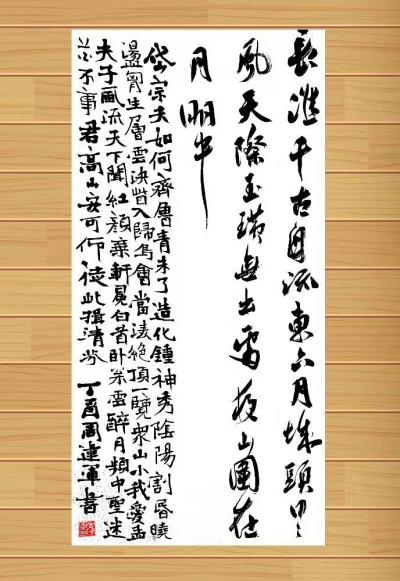 長淮千古自流東六月城頭日々
風天際玉璜無出處夜山圖在
月明中
岱宗夫如何齊魯青未了造化鍾神秀陰陽割昏曉
盪胸生層雲決眥入歸鳥會當凌絕頂一覽衆山小我愛孟
夫子風流天下聞紅顏棄軒冕白首卧松雲醉月頻中聖迷
花不事君高山安可仰徒此揖清芬 丁酉周建軍書